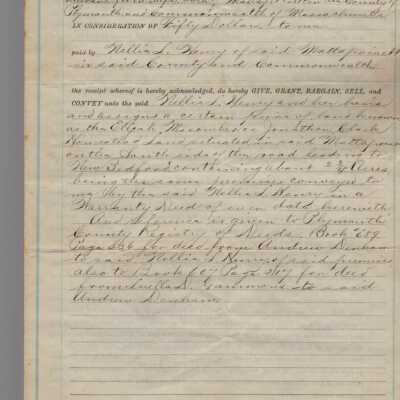 Plymouth and Commonwealth of Massachusetts
IN CONSIDERATION OF Fifty Dollars to me
paid by Nellie L. Henry of said Mattapoisett
in said County and Commonwealth
the receipt whereof is hereby acknowledged, do hereby GIVE, GRANT, BARGAIN, SELL, and
CONVEY unto the said Nellie L. Henry and her heirs
and assigns a certain piece of land known
as the Elijah or Jonathan Clark
Homestead Land situated in said Mattapoisett
on the South side of the road leading to
New Bedford containing about 2 3/4 Acres
being the same premises conveyed to
me by the said Nellie L. Henry in a
Warranty Deed of even date herewith
And reference is given to Plymouth
County Registry of Deeds Book 689
Page 326 for deed from Andrew Denham
to said Nellie L. Henry of said premises
also to Book 607 Page for deed
from Gammons to said
Andrew Denham